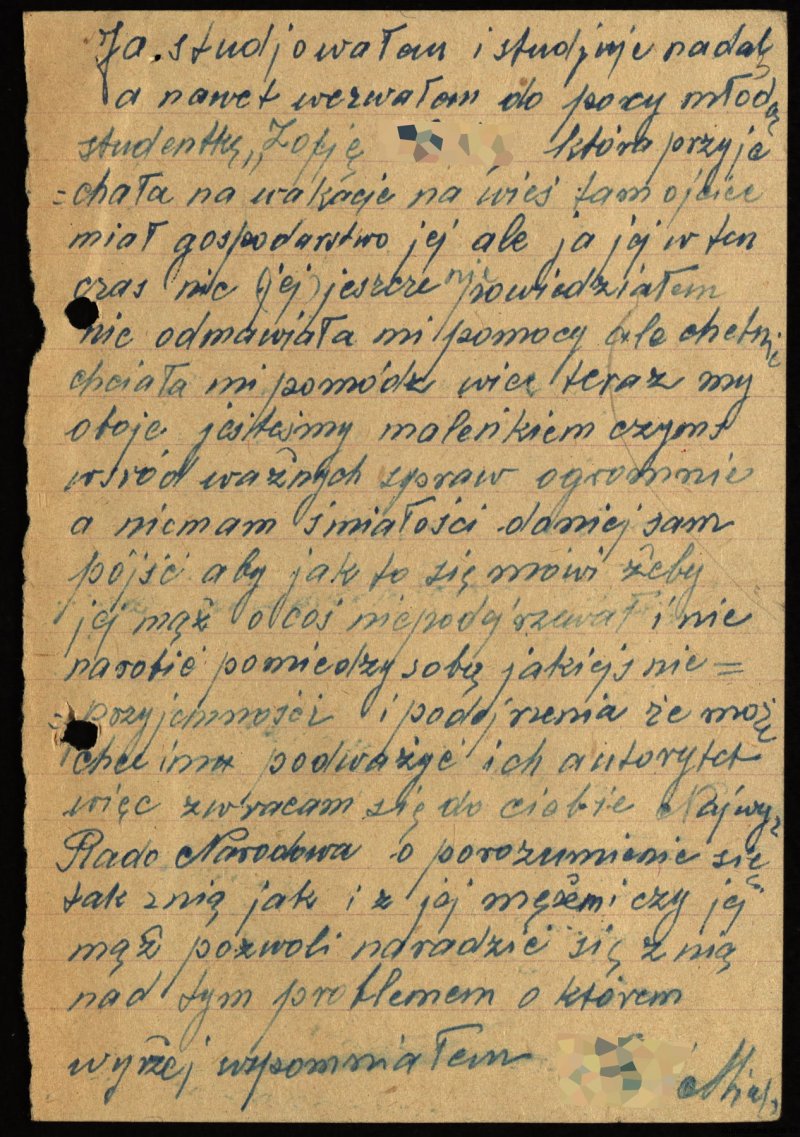 Ja. studjowałem i studjuje nadal
a nawet wezwałem do pocy młodą
studentkę „Zofję która przyje
=chała na wakacje na wieś tam ojciec
miał gospodarstwo jej ale ja jej w ten
czas nic (jej) jeszcze nie powiedziałem
nie odmawiała mi pomocy ale chetnie
chciała mi pomódz wiec teraz my
oboje jesteśmy maleńkiem czyms
wsród ważnych spraw ogromnie
a niemam śmiałości doniej sam
pójść aby jak to się mówi żeby
jej mąż o coś niepodejrzewał i nie
narobić pomiedzy sobą jakiejs nie=
=przyjemności i podejrzenia że może
chce imu podważyć ich autorytet
więc zwracam się do ciebie Najwyż
Rado Narodowa o porozumienie się
tak znią jak i z jej mężem i czy jej
mąż pozwoli naradzić się z nią
nad tym problemem o którem
wyżej wspomniałem